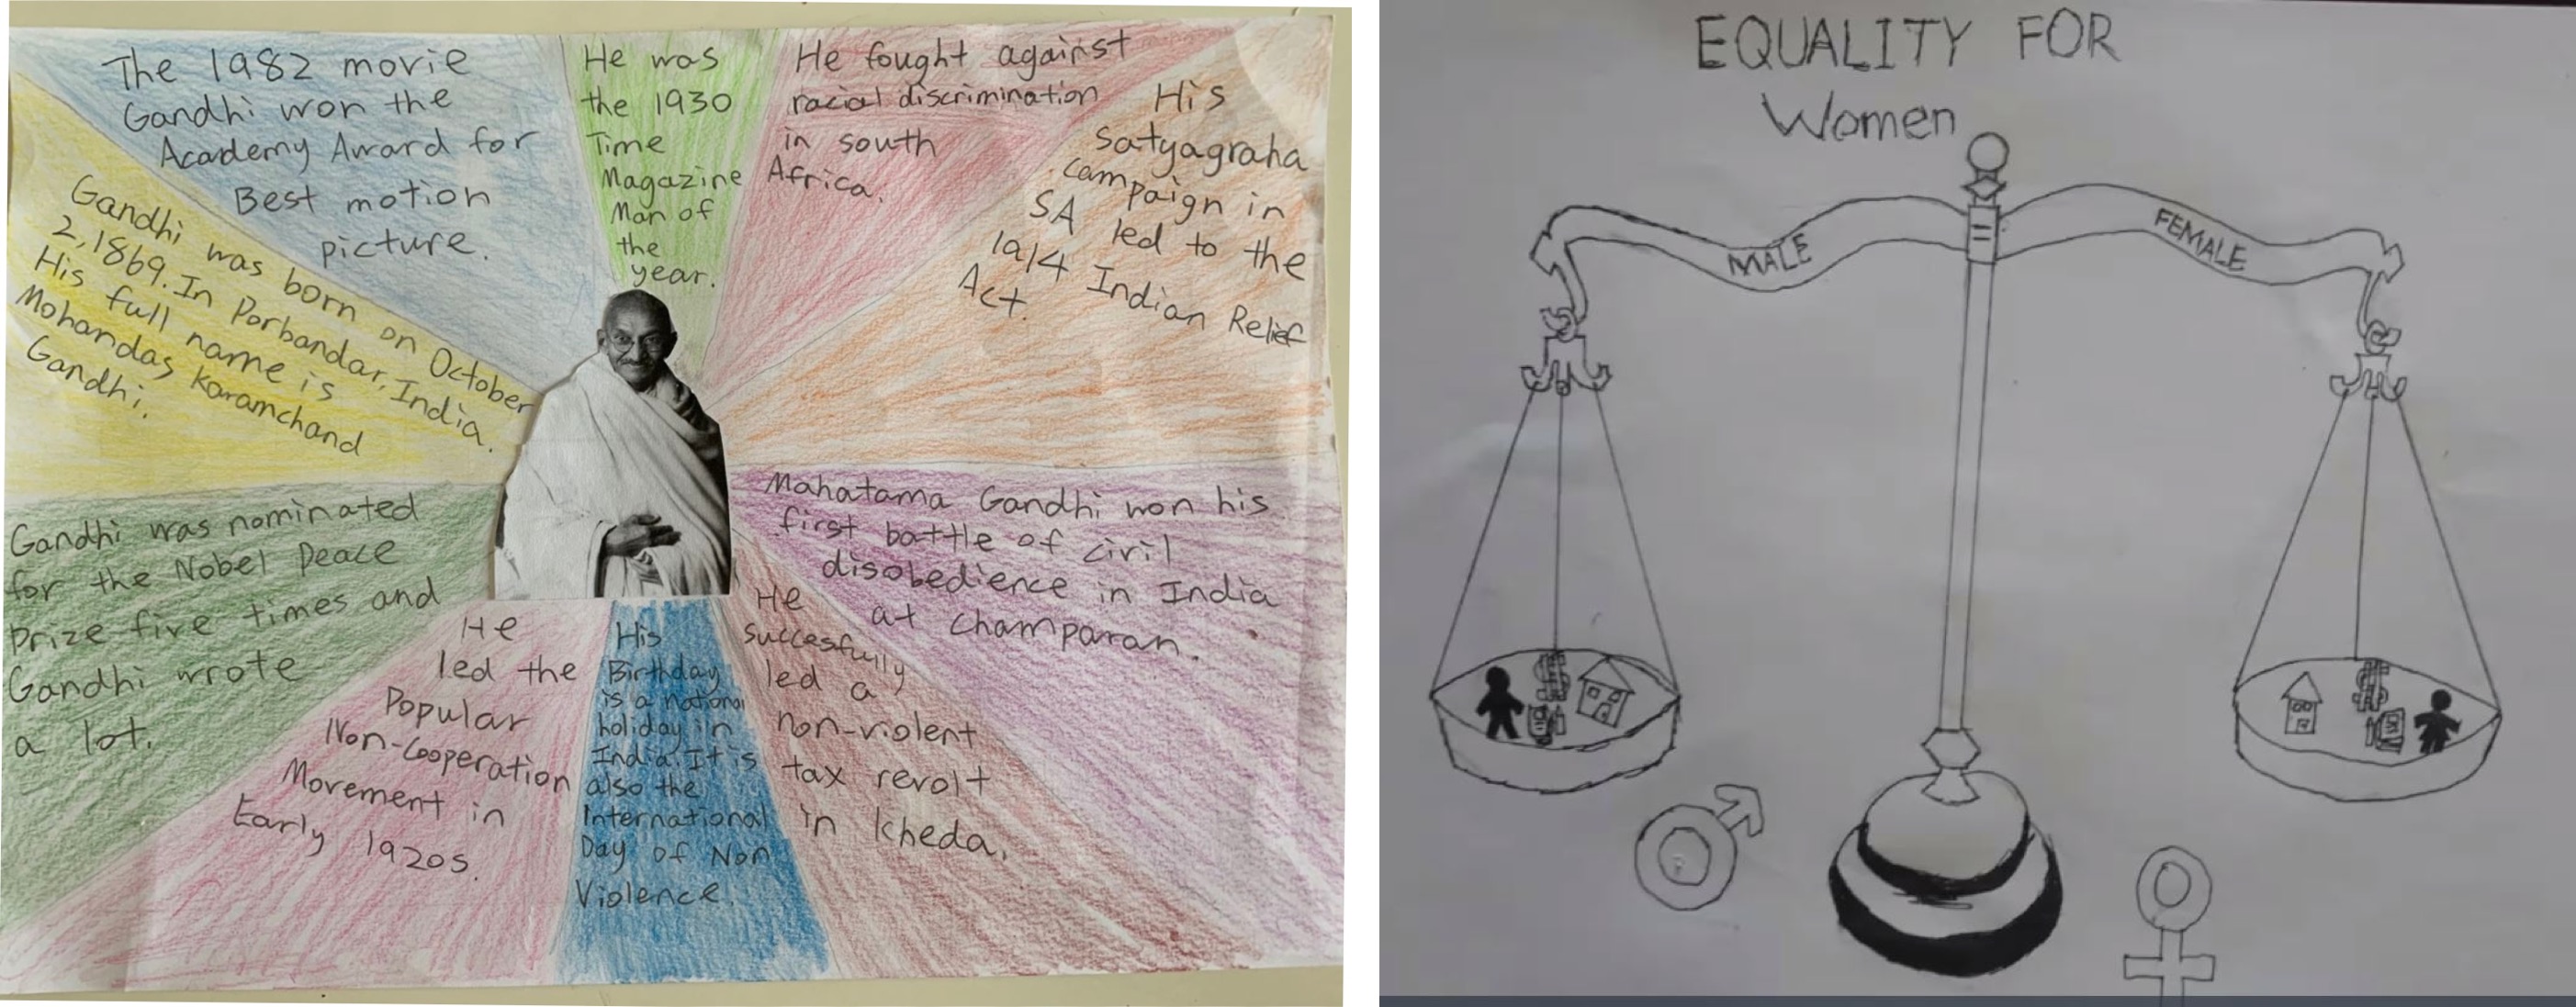 The 1982 movie
Gandhi won the
Academy Award for
Best motion
picture.
He was
the 1930
Time
Magazine
Man of
the
year.
He fought against
racial discrimination
in south
Africa.
His
Satyagraha
campaign in
SA led to the
1914 Indian Relief
Act.
Gandhi was born on October
2,1869. In Porbandar, India.
His full name is
Mohandas Karamchand
Gandhi.
Mahatama Gandhi won his
first battle of civil
disobedience in India
at Champaran.
Gandhi was nominated
for the Nobel Peace
Prize five times and
Gandhi wrote
a lot.
He
led the
Popular
Non-Cooperation
Movement in
Early 1920s.
His
Birthday
is a national
holiday in
India. It is
also the
International
Day of Non
Violence.
He
succesfully
led a
non-violent
tax revolt
in kheda.
EQUALITY FOR
Women
MALE
FEMALE
$
$